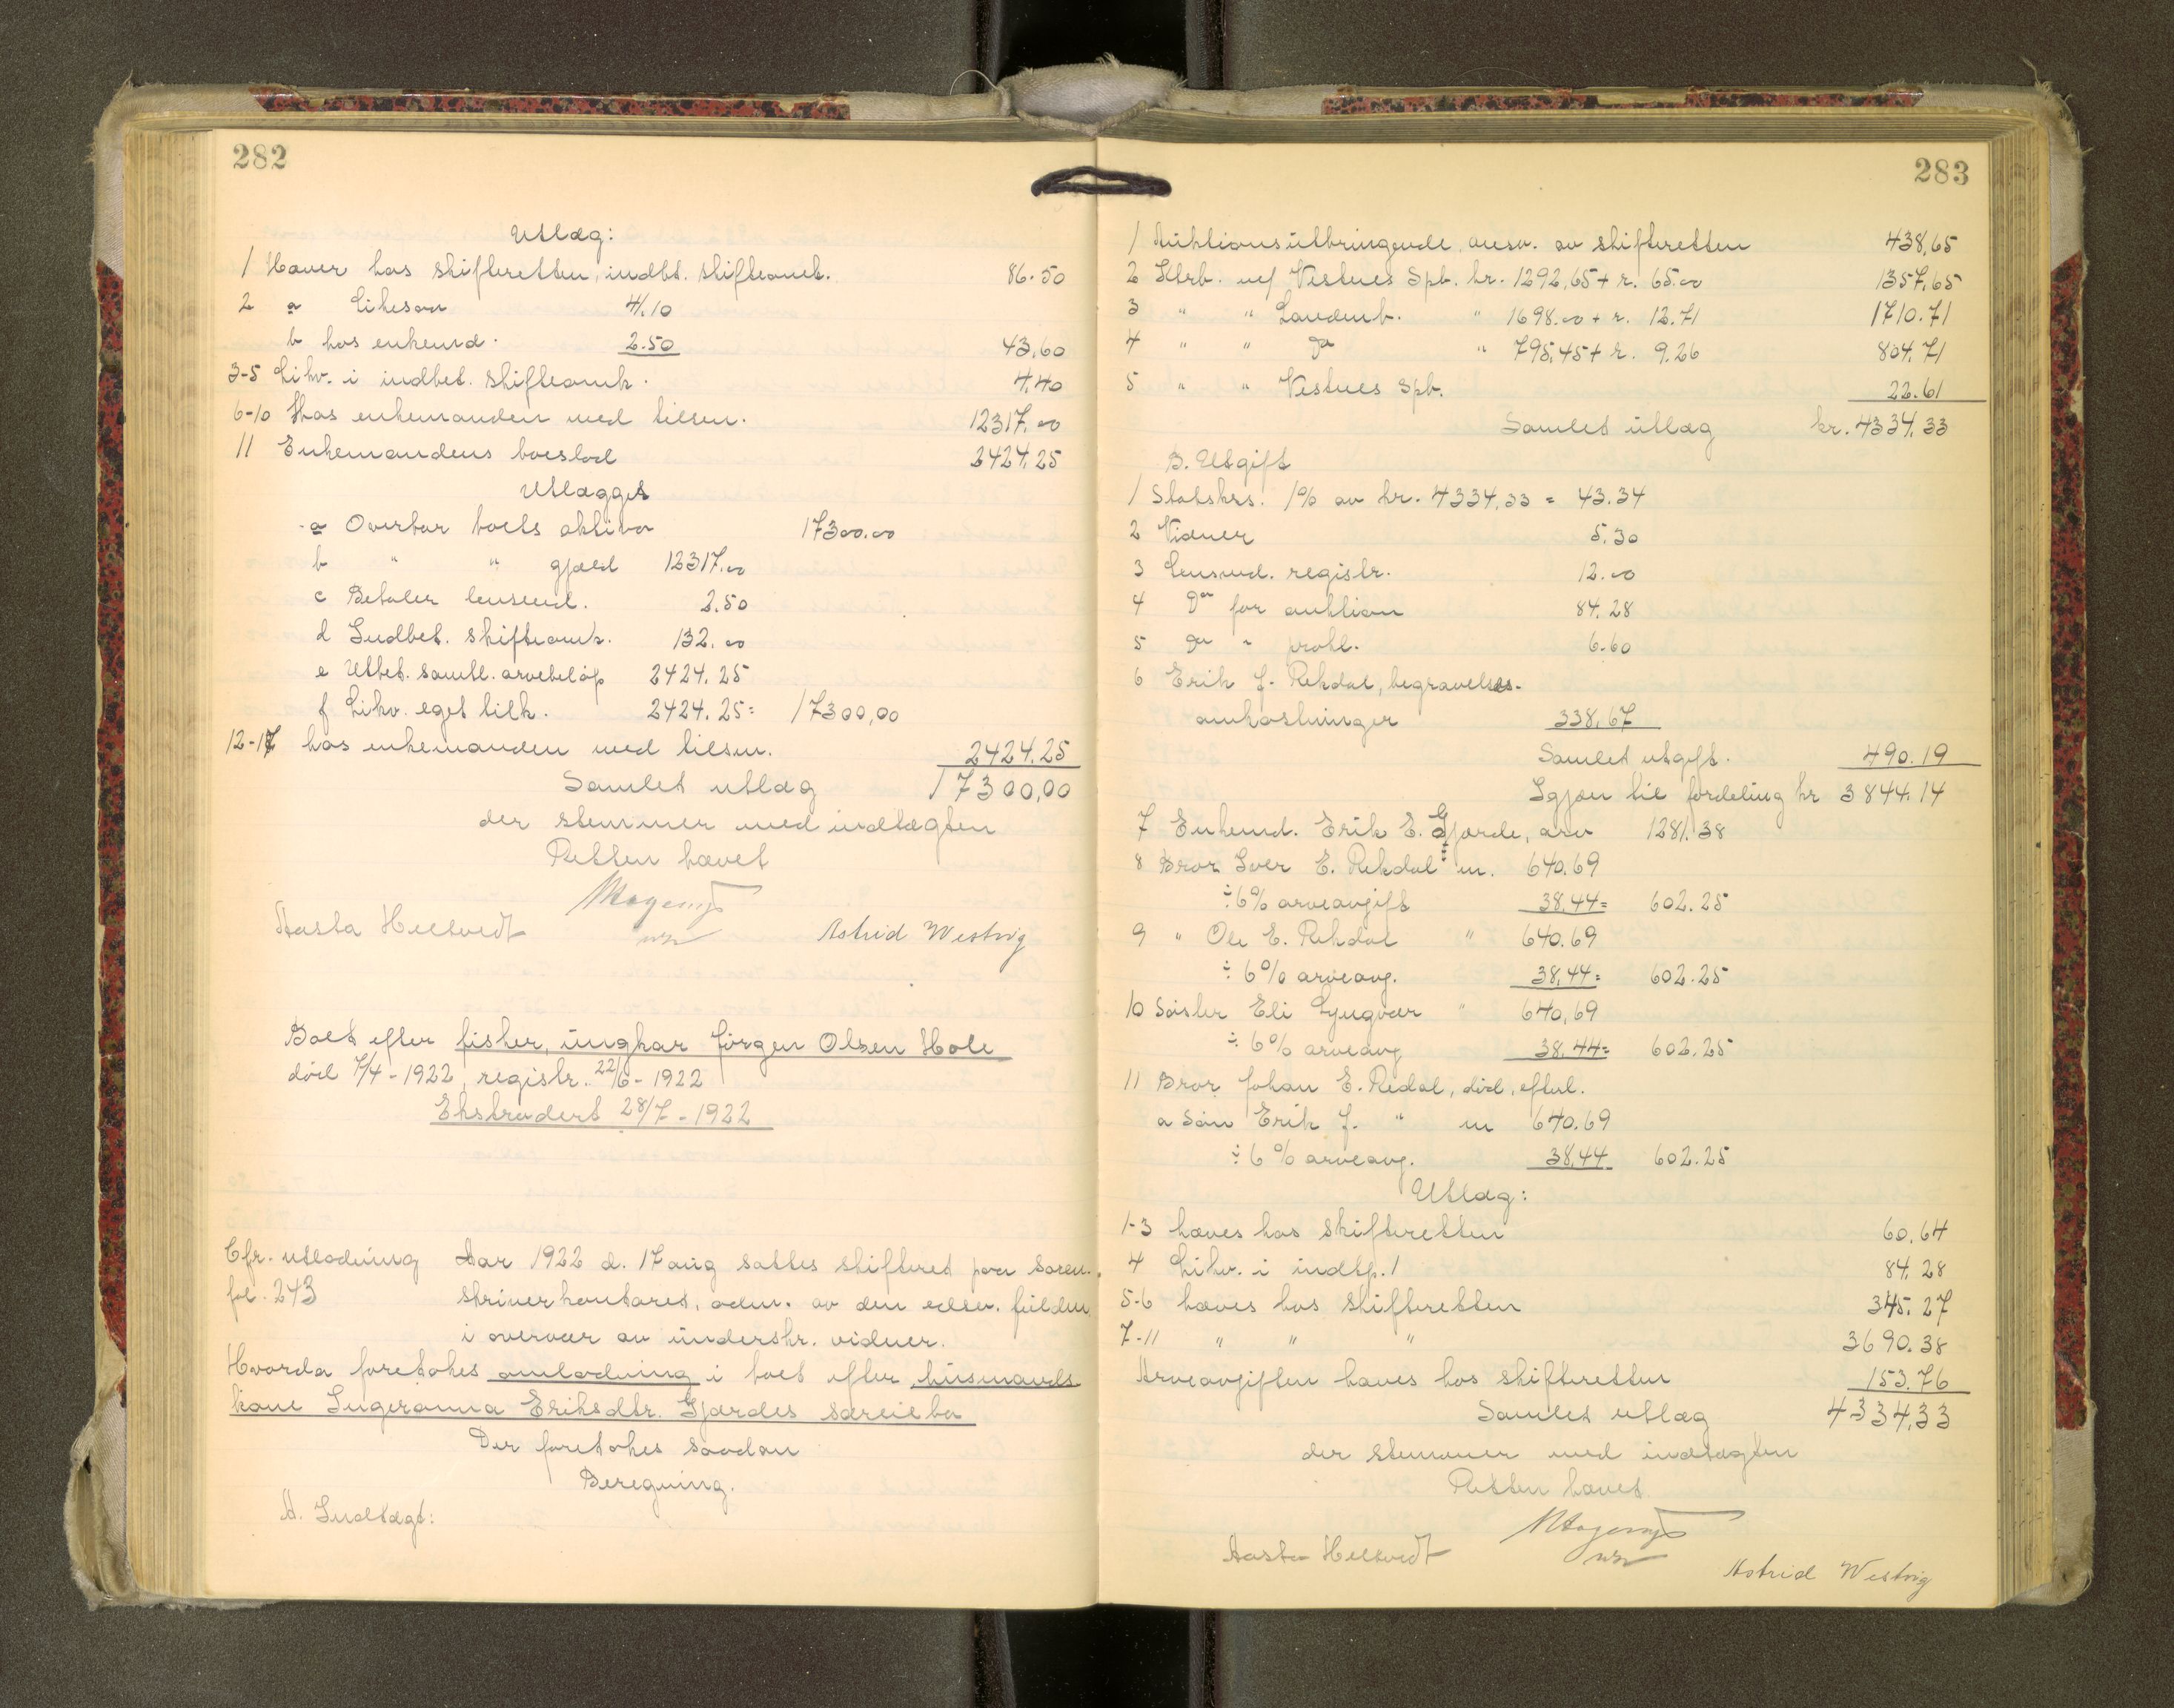 282
Utlæg:
1 Haves hos skifteretten, indbt. skifteomk. 86.50
2 a Likesaa 41.10
b hos enkemd. 2.50 43,60
3-5 Likv. i indbet. skifteomk. 4,40
6-10 Hos enkemanden med tilsvar. 12317,00
11 Enkemandens boeslod 2424,25
Utlægges
a Overtar boets aktiva 17300.00
b " " gjæld 12317.00
c Betaler lensmd. 2.50
d Indbet. skifteomk. 132.00
e Utbet. samtl. arvebeløp 2424.25
f Likv. eget tilk. 2424.25 = 17300,00
12-17 hos enkemanden med tilsvar. 2424.25
Samlet utlæg 17300,00
der stemmer med indtægten
Retten hævet
Aasta Heltvedt Astrid Westvig
Boet efter fisker, ungkar Jörgen Olsen Hole
död 7/4-1922, registr. 22/6-1922
Ekstradert 28/7-1922
Cfr. utlodning fol. 243
Aar 1922 d. 17 aug sattes skifteret paa soren-
skriverkontoret, adm. av den edsv. fuldm.
i overvær av underskr. vidner.
Hvorda foretokes omlodning i boet efter husmands
kone Ingeranna Eriksdtr. Gjærdes særeiebo
Der foretokes saadan
Beregning.
A. Indtægt:
283
1 Auktionsutbringende, ansv. av skifteretten 438,65
2 Ktrb. m/ Vestnes Spb. kr. 1292,65 + r. 65.00 1357,65
3 " " Landmb. " 1698.00 + r. 12.71 1710.71
4 " " do " 795,45 + r. 9.26 804.71
5 " " Vestnes Spb. 22.61
Samlet utlæg kr. 4334,33
B. Utgift
1 Statskrs. 1% av kr. 4334,33 = 43.34
2 Vidner 5.30
3 Lensmd. registr. 12.00
4 do for auktion 84.28
5 do " prokl. 6.60
6 Erik J. Rekdal, begravelses-
omkostninger 338,67
Samlet utgift. 490.19
Igjen til fordeling kr 3844.14
7 Enkemd. Erik E. Gjærde, arv 1281.38
8 Bror Iver E. Rekdal m. 640.69
÷ 6% arveavgift 38.44 = 602.25
9 " Ole E. Rekdal " 640.69
÷ 6% arveavg. 38,44 = 602.25
10 Söster Eli Lyngvær " 640,69
÷ 6% arveavg 38.44 = 602,25
11 Bror Johan E. Redal, död, eftul.
a Sön Erik J. " m 640.69
÷ 6% arveavg. 38,44 602.25
Utlæg:
1-3 hæves hos skifteretten 60.64
4 Likv. i indtp. 1 84.28
5-6 hæves hos skifteretten 345.27
7-11 " " " 3690.38
Arveavgiften hæves hos skifteretten 153.76
Samlet utlæg 4334,33
der stemmer med indtægten
Retten hævet.
Aasta Heltvedt Astrid Westvig